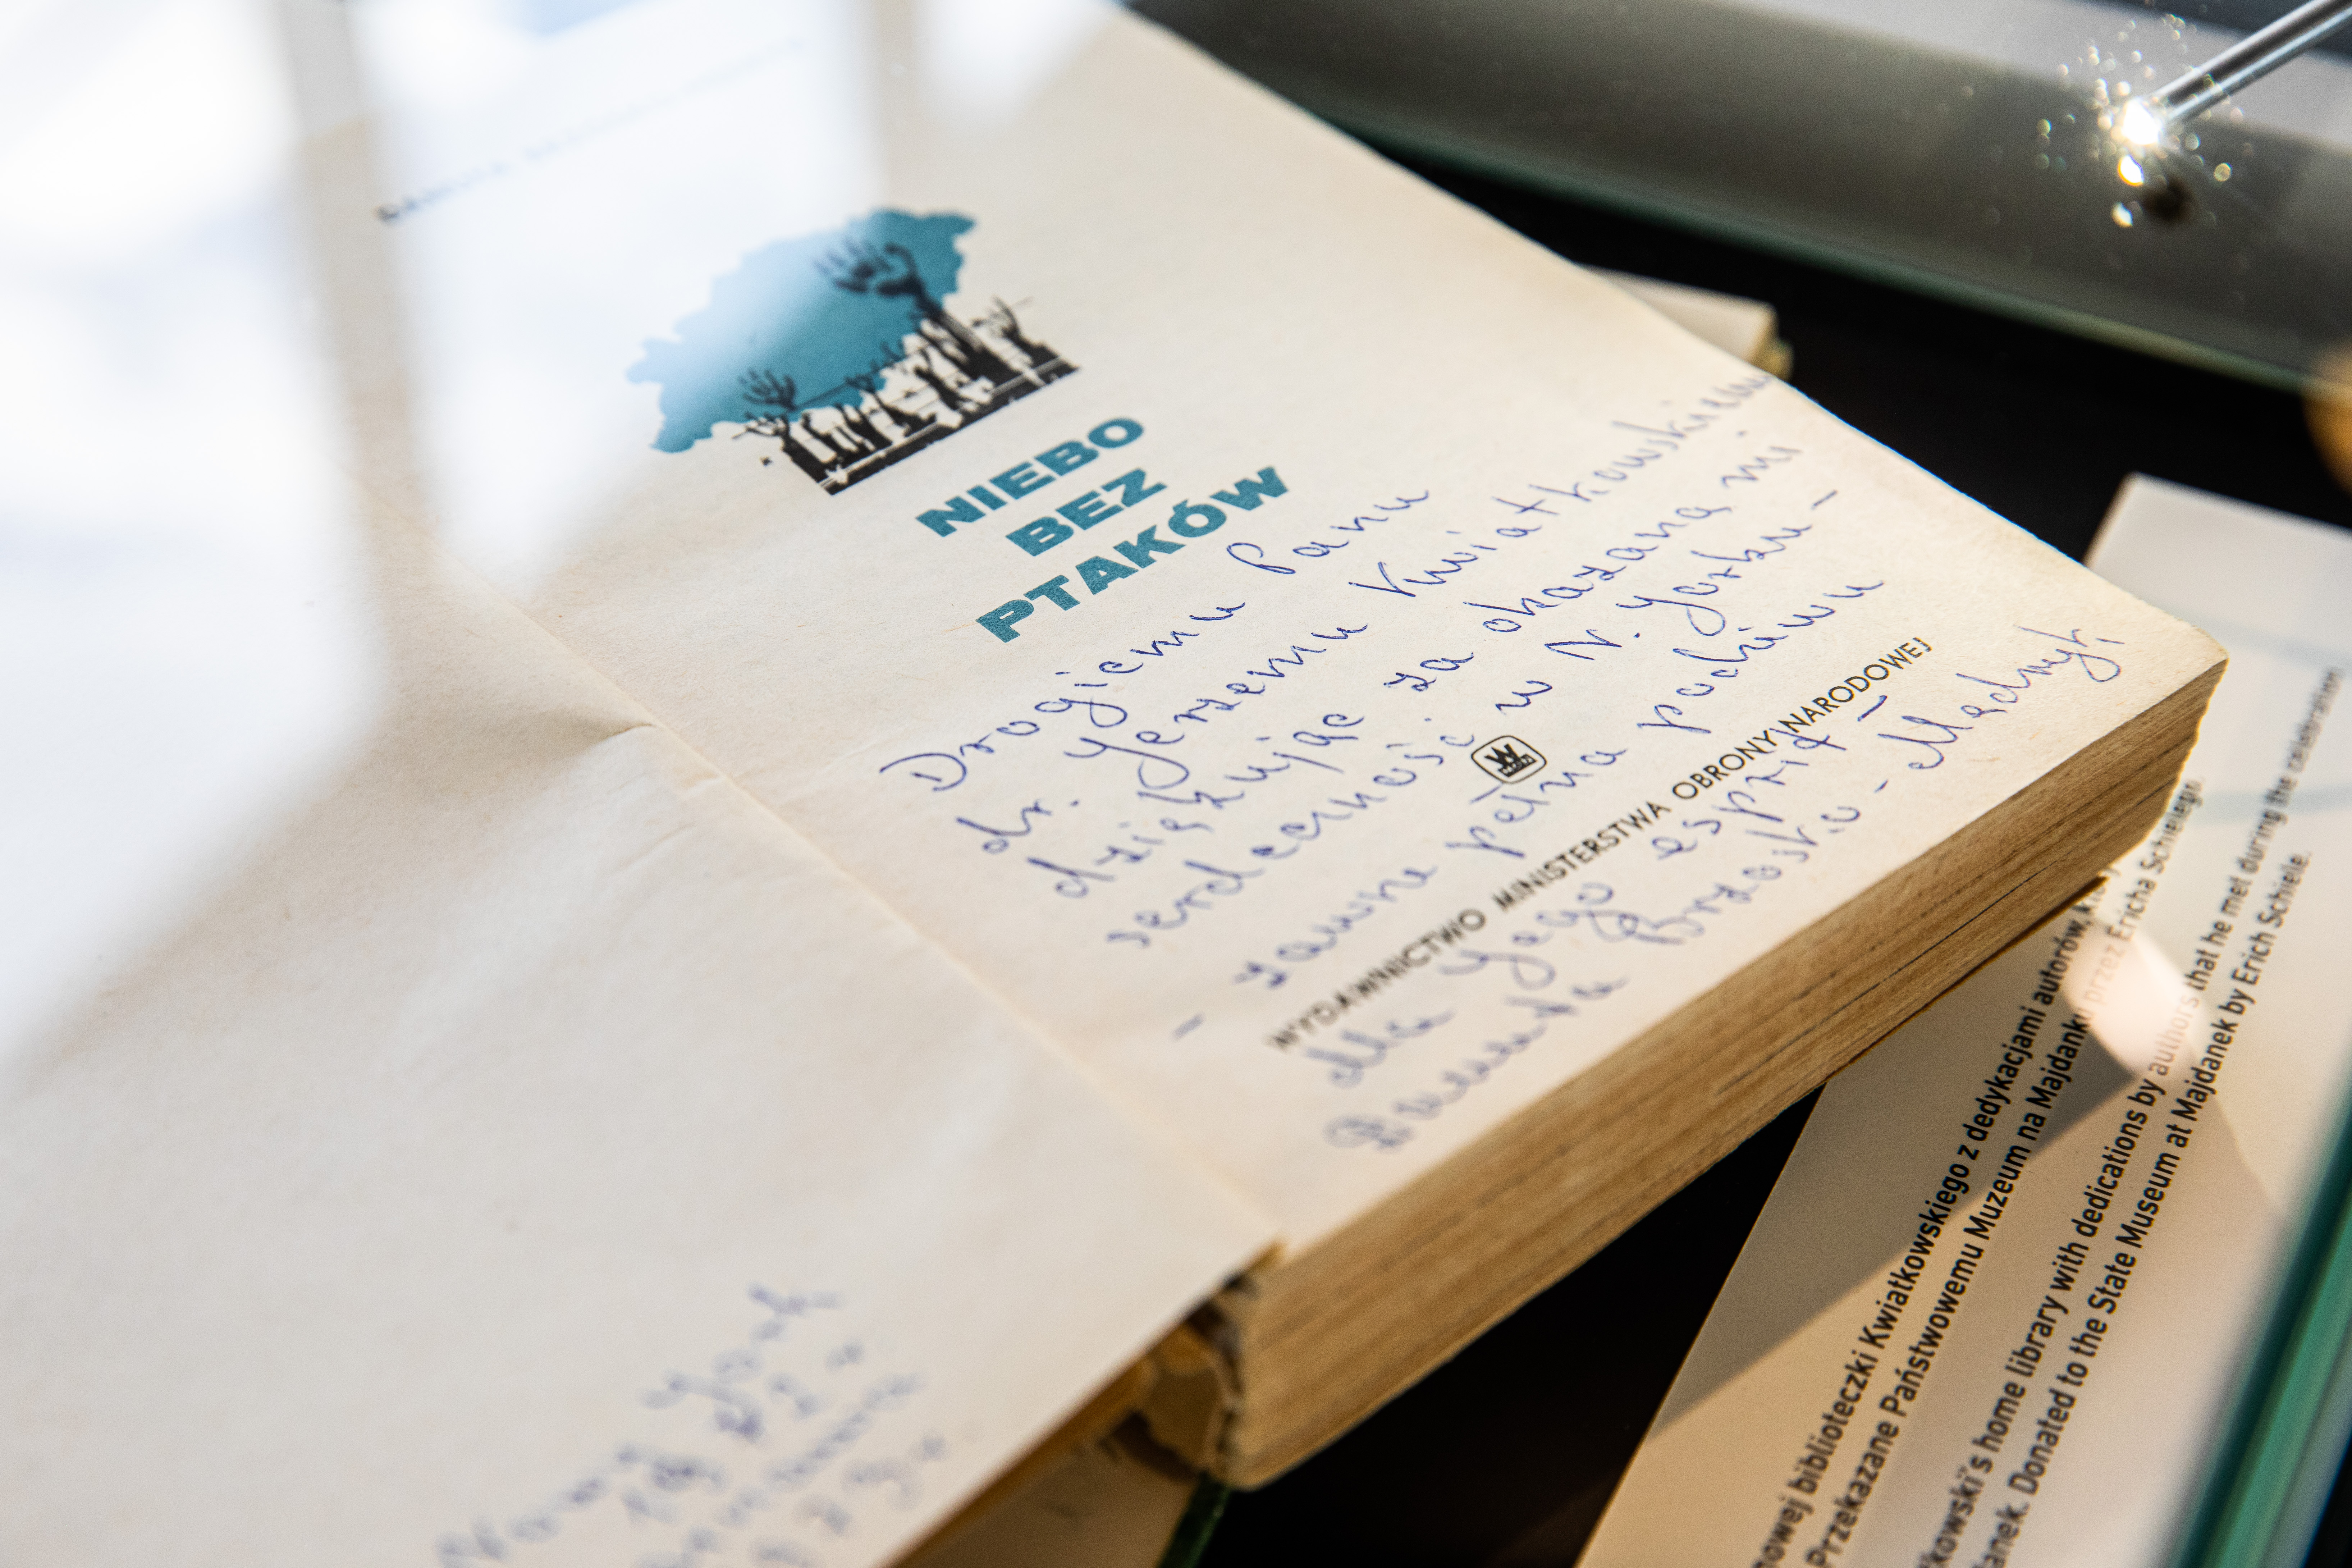 NIEBO
BEZ
PTAKÓW
Drogiemu Panu
dr. Jerzemu Kwiatkowskiemu
dziękując za okazaną mi
serdeczność w N. Yorku -
- zawsze pełna podziwu
W
MON
WYDAWNICTWO MINISTERSTWA OBRONY NARODOWEJ
dla Jego esprit -
Danuta Brzosko-Mędryk
Nowy York
18
1975 r.
nowej biblioteczki Kwiatkowskiego z dedykacjami autorów,
Przekazane Państwowemu Muzeum na Majdanku przez Ericha Schielego.
kowski's home library with dedications by authors that he met during the celebrations
danek. Donated to the State Museum at Majdanek by Erich Schiele.